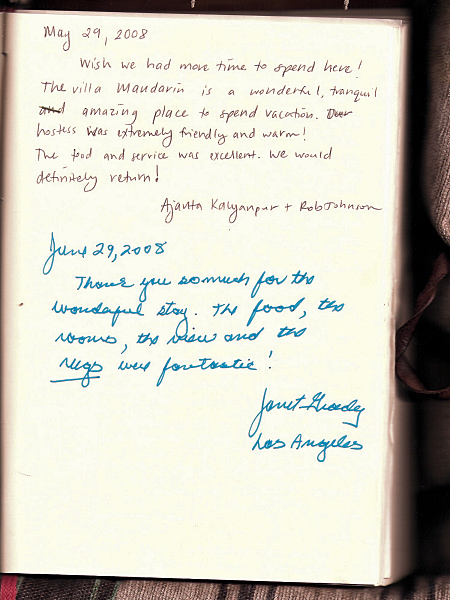 May 29, 2008
Wish we had more time to spend here!
The villa Mandarin is a wonderful, tranquil
and amazing place to spend vacation. Our
hostess was extremely friendly and warm!
The food and service was excellent. We would
definitely return!
Ajanta Kalyanpur + Rob Johnson
June 29, 2008
Thank you so much for the
wonderful stay. The food, the
rooms, the view and the
rugs were fantastic!
Janet Grady
Los Angeles